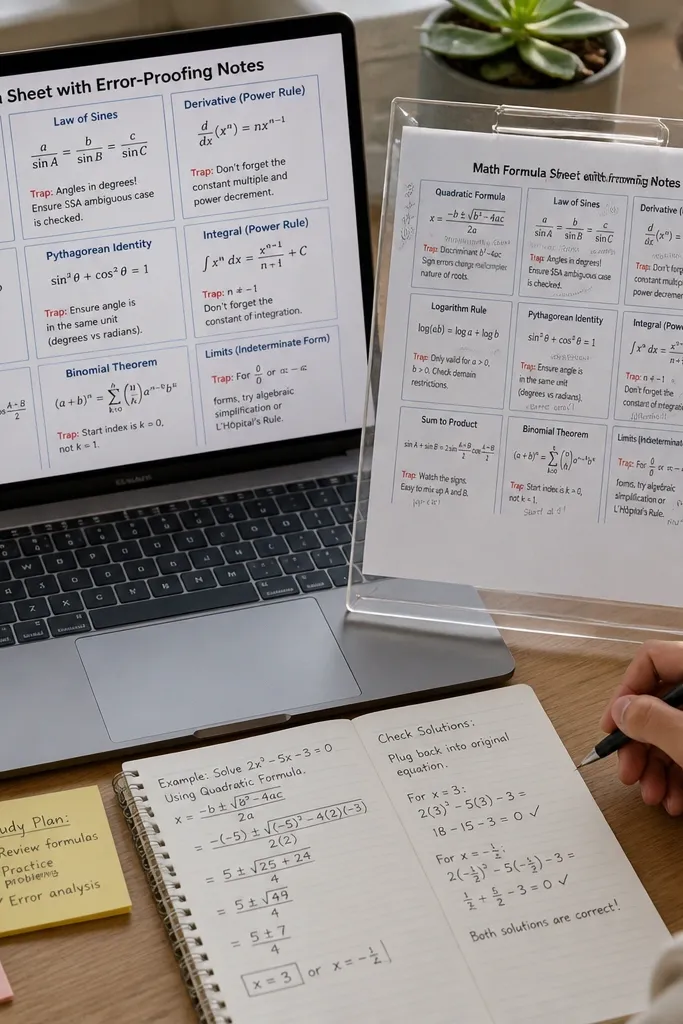 Sheet with Error-Proofing Notes
Law of Sines
a/sin A = b/sin B = c/sin C
Trap: Angles in degrees!
Ensure SSA ambiguous case
is checked.
Derivative (Power Rule)
d/dx (xⁿ) = nxⁿ⁻¹
Trap: Don't forget the
constant multiple and
power decrement.
Pythagorean Identity
sin² θ + cos² θ = 1
Trap: Ensure angle is
in the same unit
(degrees vs radians).
Integral (Power Rule)
∫ xⁿ dx = xⁿ⁻¹/n+1 + C
Trap: n ≠ −1
Don't forget the
constant of integration.
Binomial Theorem
(a + b)ⁿ = Σ
Trap: Start index is k = 0,
not k = 1.
Limits (Indeterminate Form)
Trap: For 0/0 or ∞ − ∞
forms, try algebraic
simplification or
L'Hôpital's Rule.
A−B/2
Math Formula Sheet Notes
Quadratic Formula
x = −b ± √b² − 4ac / 2a
Trap: Discriminant b² − 4ac
Sign errors change
nature of roots.
Law of Sines
a/sin A = b/sin B = c/sin C
Trap: Angles in degrees!
Ensure SSA ambiguous case
is checked.
Derivative (
d/dx (xⁿ) =
Trap: Don't
constant
power decrem
Logarithm Rule
log(ab) = log a + log b
Trap: Only valid for a > 0,
b > 0. Check domain
restrictions.
Pythagorean Identity
sin² θ + cos² θ = 1
Trap: Ensure angle is
in the same unit
(degrees vs radians).
Integral (Power
∫ xⁿ dx =
Trap: n ≠ −1
Don't forget the
constant of
Sum to Product
sin A + sin B = 2 sin A+B/2 cos A−B/2
Trap: Watch the signs.
Easy to mix up A and B.
Binomial Theorem
(a + b)ⁿ = Σ
Trap: Start index is k = 0,
not k = 1.
Start at 0!
Limits (Indeterminate
Trap: For 0/0 or ∞ −
forms, try algebraic
simplification or
L'Hôpital's Rule.
udy Plan:
Review formulas
Practice
problems
Error analysis
Example: Solve 2x² − 5x − 3 = 0
Using Quadratic Formula.
x = −b ± √b² − 4ac / 2a
= −(−5) ± √(−5)² − 4(2)(−3) / 2(2)
= 5 ± √25 + 24 / 4
= 5 ± √49 / 4
= 5 ± 7 / 4
x = 3 or x = −1/2
Check Solutions:
Plug back into original
equation.
For x = 3:
2(3)² − 5(3) − 3 =
18 − 15 − 3 = 0 ✓
For x = −1/2:
2(−1/2)² − 5(−1/2) − 3 =
1/2 + 5/2 − 3 = 0 ✓
Both solutions are correct!